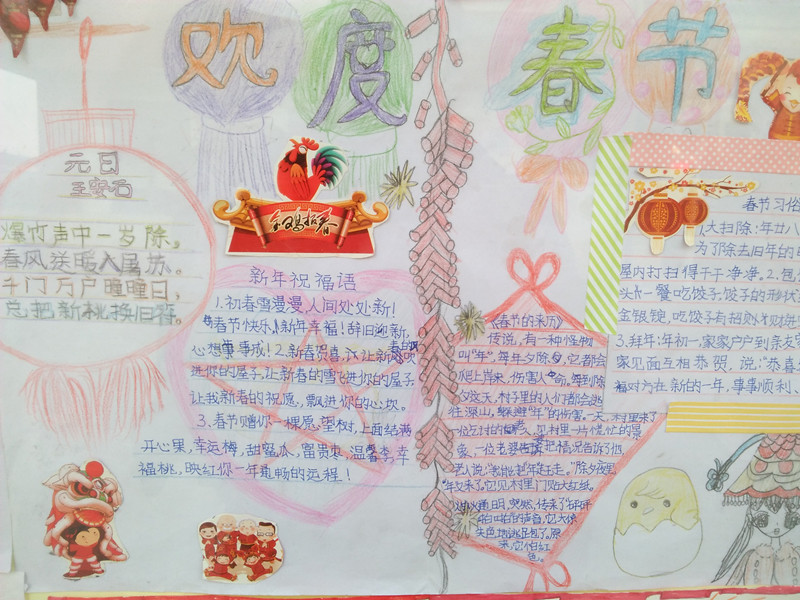 欢度春节
元日
王安石
爆竹声中一岁除。
春风送暖入屠苏。
千门万户曈曈日,
总把新桃换旧符。
金鸡报春
新年祝福语
1.初春雪漫漫,人间处处新!
春节快乐!新年幸福!辞旧迎新,
心想事成!2.新春贺喜,让新春的风吹
进你的屋子,让新春的雪飞进你的屋子
让我新春的祝愿,飘进你的心坎。
3.春节赠你一棵愿望树,上面结满
开心果,幸运梅,甜蜜瓜,富贵枣,温馨李,幸
福桃,映红你一年惬畅的远程!
《春节的来历》
传说,有一种怪物
叫“年”,每年夕除,它都会
爬上岸来,伤害人命。每到除
夕这天,村子里的人们都会逃
往深山,躲避“年”的伤害。一天,村里来了
一位乞讨的 见村里一片慌忙的景
象,一位老婆 把情况告诉了他
老人说:“我能把年赶走。”除夕夜里
年又来了,它见村里门贴大红纸。
烛火通明,突然,传来了“砰砰
啪啪”的声音,它大惊
失色,地逃跑了。原
来,它怕红
色。
春节习俗
1.大扫除:年廿八
为了除去旧年的
屋内打扫得干干净净。2.包
头一餐吃饺子,饺子的形状
金银锭,吃饺子有招财
3.拜年:年初一,家家户户到亲友
家见面互相恭贺,说:“恭喜
福对方在新的一年,事事顺利、